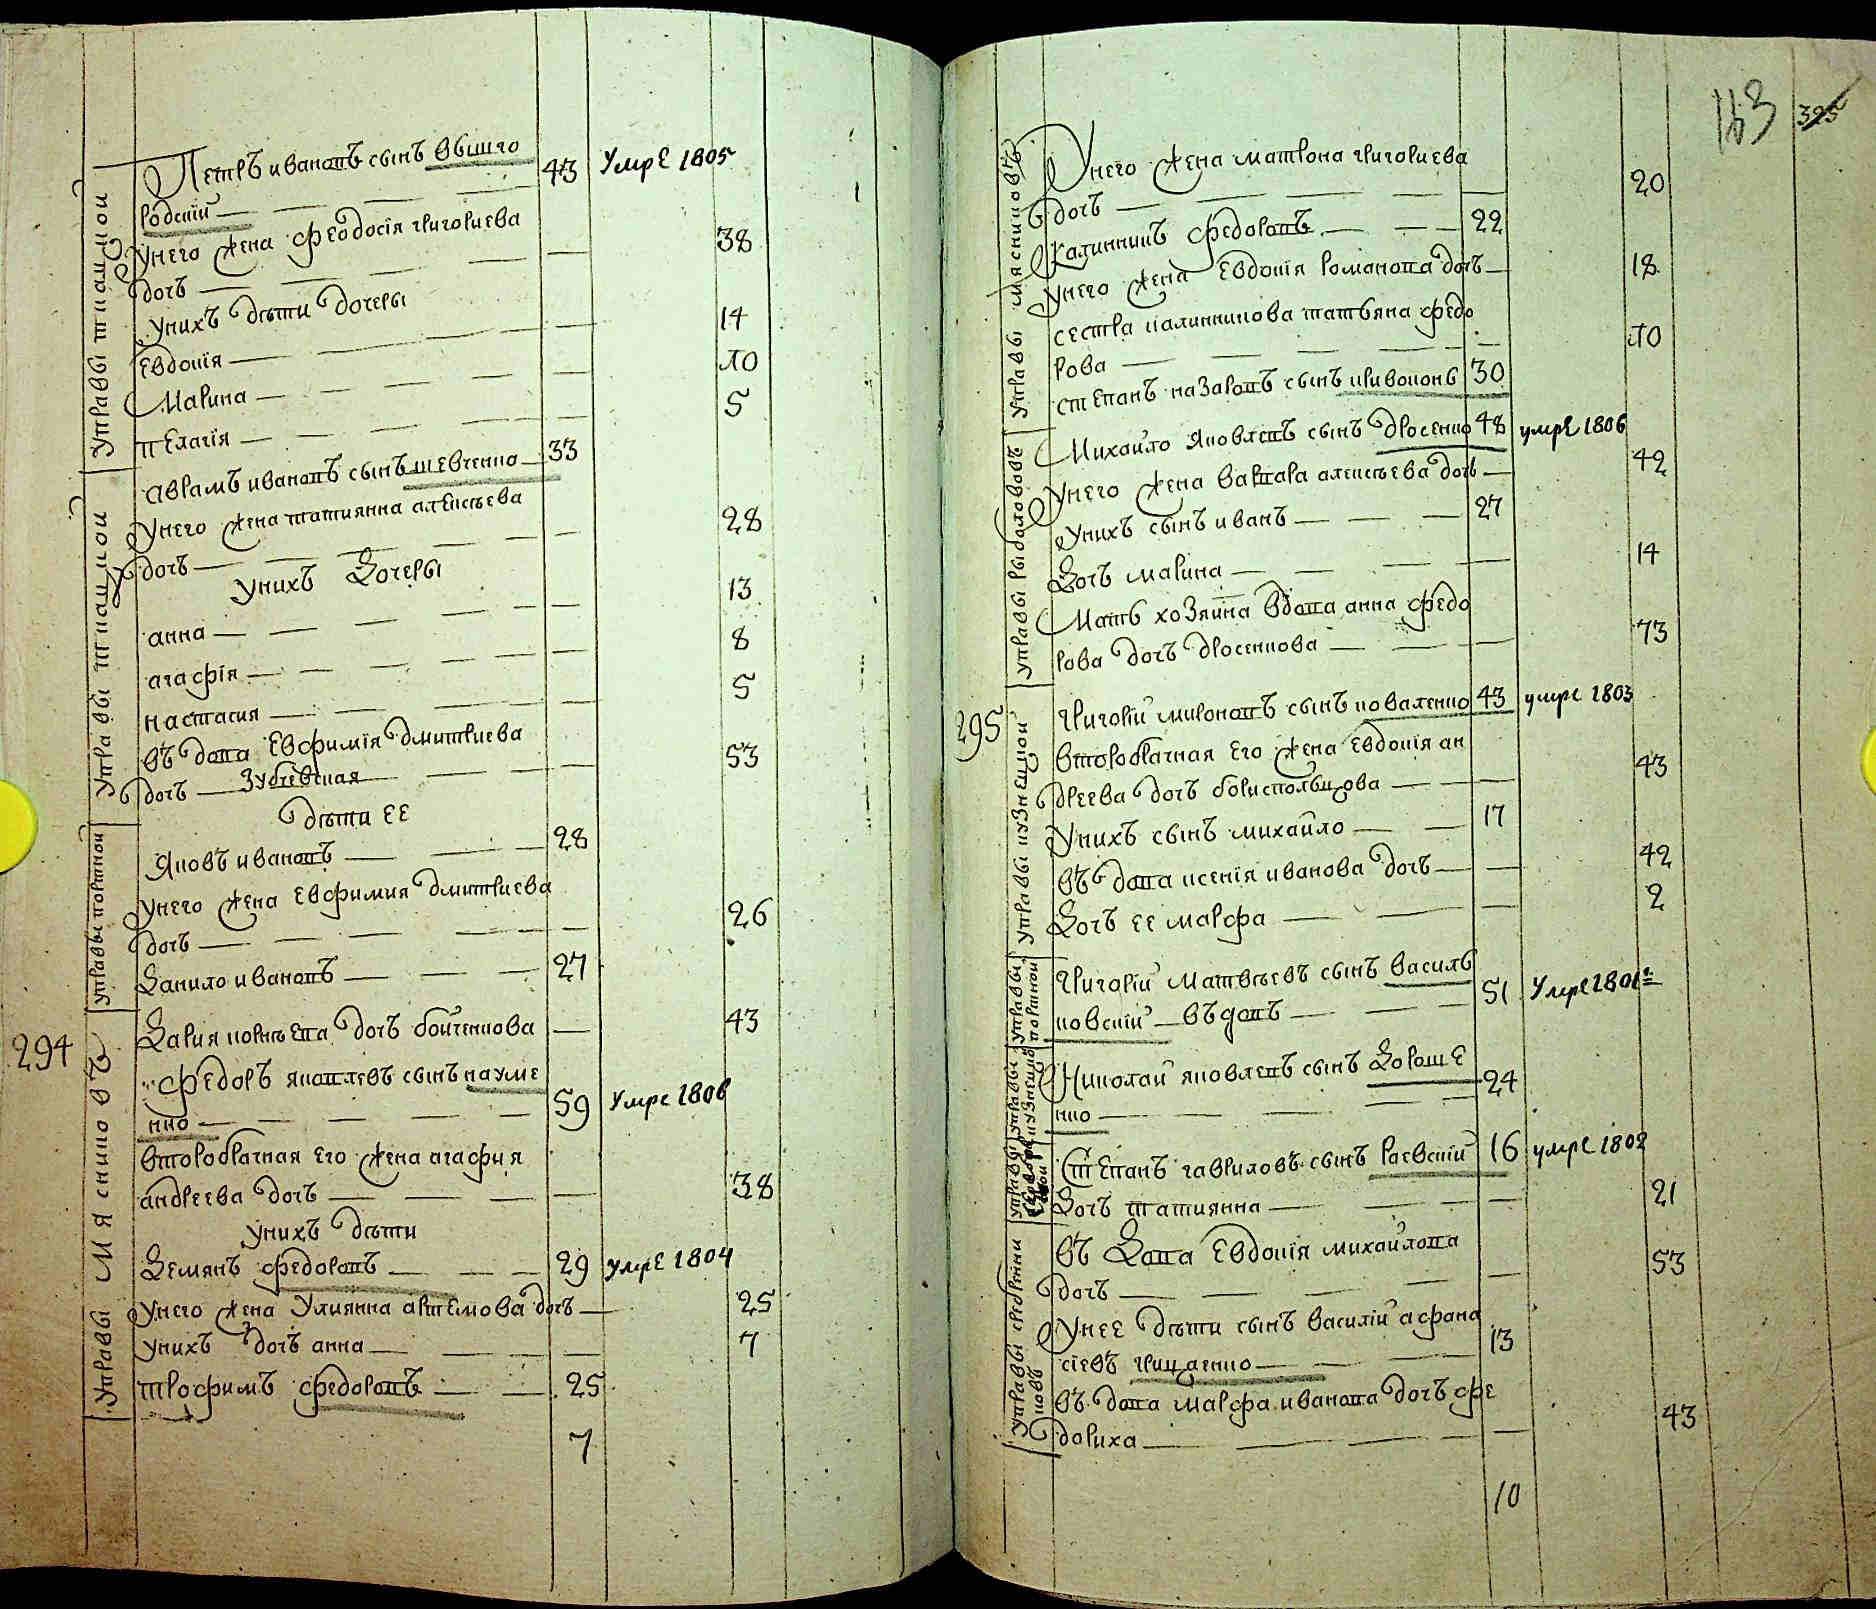 Управы ткацкой
Петръ Ивановъ сынъ Вышго
родскій 43 умре 1805
У него жена Феодосія Григориева
дочь 38
У нихъ дѣти дочеры
Евдокія 14
Марина 10
Пелагія 5
Управы ткацкой
Аврамъ Ивановъ сынъ Шевченко 33
У него жена Татиянна Алексѣева
дочь 28
У нихъ дочеры
Анна 13
Агафія 8
Настасия 5
въдова Евфимія Дмитриева
дочь Зубевская 53
дѣти ее
управы портной
Яковъ Ивановъ 28
У него жена Евфимия Дмитриева
дочь 26
Данило Ивановъ 27
294
Дария Корнѣева дочь Бойченкова 43
Управы мясниковъ
Федоръ Яковлевъ сынъ Науме
нко 59 умре 1806
второбрачная его жена Агафия
Андреева дочь 38
У нихъ дѣти
Демянъ Федоровъ 29 умре 1804
У него жена Улиянна Артемова дочь 25
У нихъ дочь Анна 7
Трофимъ Федоровъ 25
7
113 325
Управы мясниковъ
У него жена Матрона Григориева
дочь 20
Калинникъ Федоровъ 22
У него жена Евдокія Романова дочь 18
сестра Калинникова Татьяна Федо
рова 10
Степанъ Назаровъ сынъ Кривоконь 30
управы рыболововъ
Михайло Яковлевъ сынъ Дросенко 48 умре 1806
У него жена Варвара Алексѣева дочь 42
У нихъ сынъ Иванъ 27
Дочь Марина 14
Мать хозяина вдова Анна Федо
рова дочь Дросенкова 73
295
Управы кузнецкой
Григорій Мироновъ сынъ Коваленко 43 умре 1803
второбрачная его жена Евдокія Ан
дреева дочь Борисполцова 43
У нихъ сынъ Михайло 17
въдова Ксенія Иванова дочь 42
Дочь ее Марфа 2
управы портной
Григорій Матвѣевъ сынъ Василь
ковскій въдовъ 51 умре 1801
управы кузнецкой
Николай Яковлевъ сынъ Дороше
нко 24
управы
Степанъ Гавриловъ сынъ Раевскій 16 умре 1802
Дочь Татиянна 21
въдова Евдокія Михайлова
дочь 53
У нее дѣти сынъ Василій Афана
сіевъ Грищенко 13
въдова Марфа Иванова дочь Фе
дориха 43
10